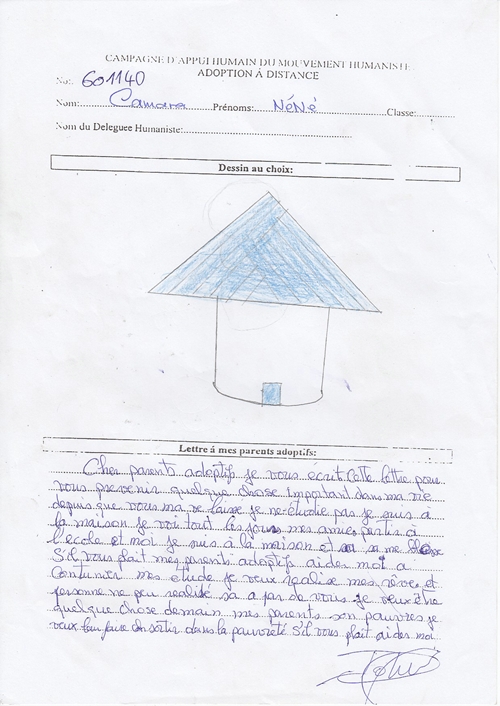 CAMPAGNE D'APPUI HUMAIN DU MOUVEMENT HUMANISTE
ADOPTION À DISTANCE
No: 601140
Nom: Camara Prénoms: NéNé Classe:
Nom du Deleguee Humaniste:
Dessin au choix:
Lettre á mes parents adoptifs:
Cher parents adoptifs je vous écrit cette lettre pour
vous prevenir quelque chose important dans ma vie
depuis que vous ma je ne étudie pas je suis à
la maison je voi tout les jours mes amies partir à
l'ecole et moi je suis à la maison et sa me
S'il vous plait mes parents adoptifs aider moi a
contunier mes etude je veux realise mes rêve et
personne ne peu realisé sa a par de vous je veux être
quelque chose demain mes parents son pauvres je
veux faire sortir dans la pauvreté S'il vous plait aider moi